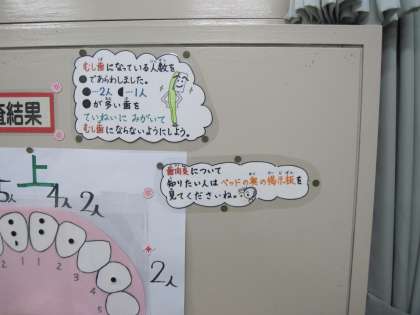 むし歯になっている人数を
●であらわしました。
●…2人 ◖…1人
●が多い歯を
ていねいに みがいて
むし歯にならないようにしよう。
査結果
歯肉炎について
知りたい人は ベッドの奥の掲示板を
見てくださいね。
上
5人 4人 2人
2人
1 1 2 3 4 5